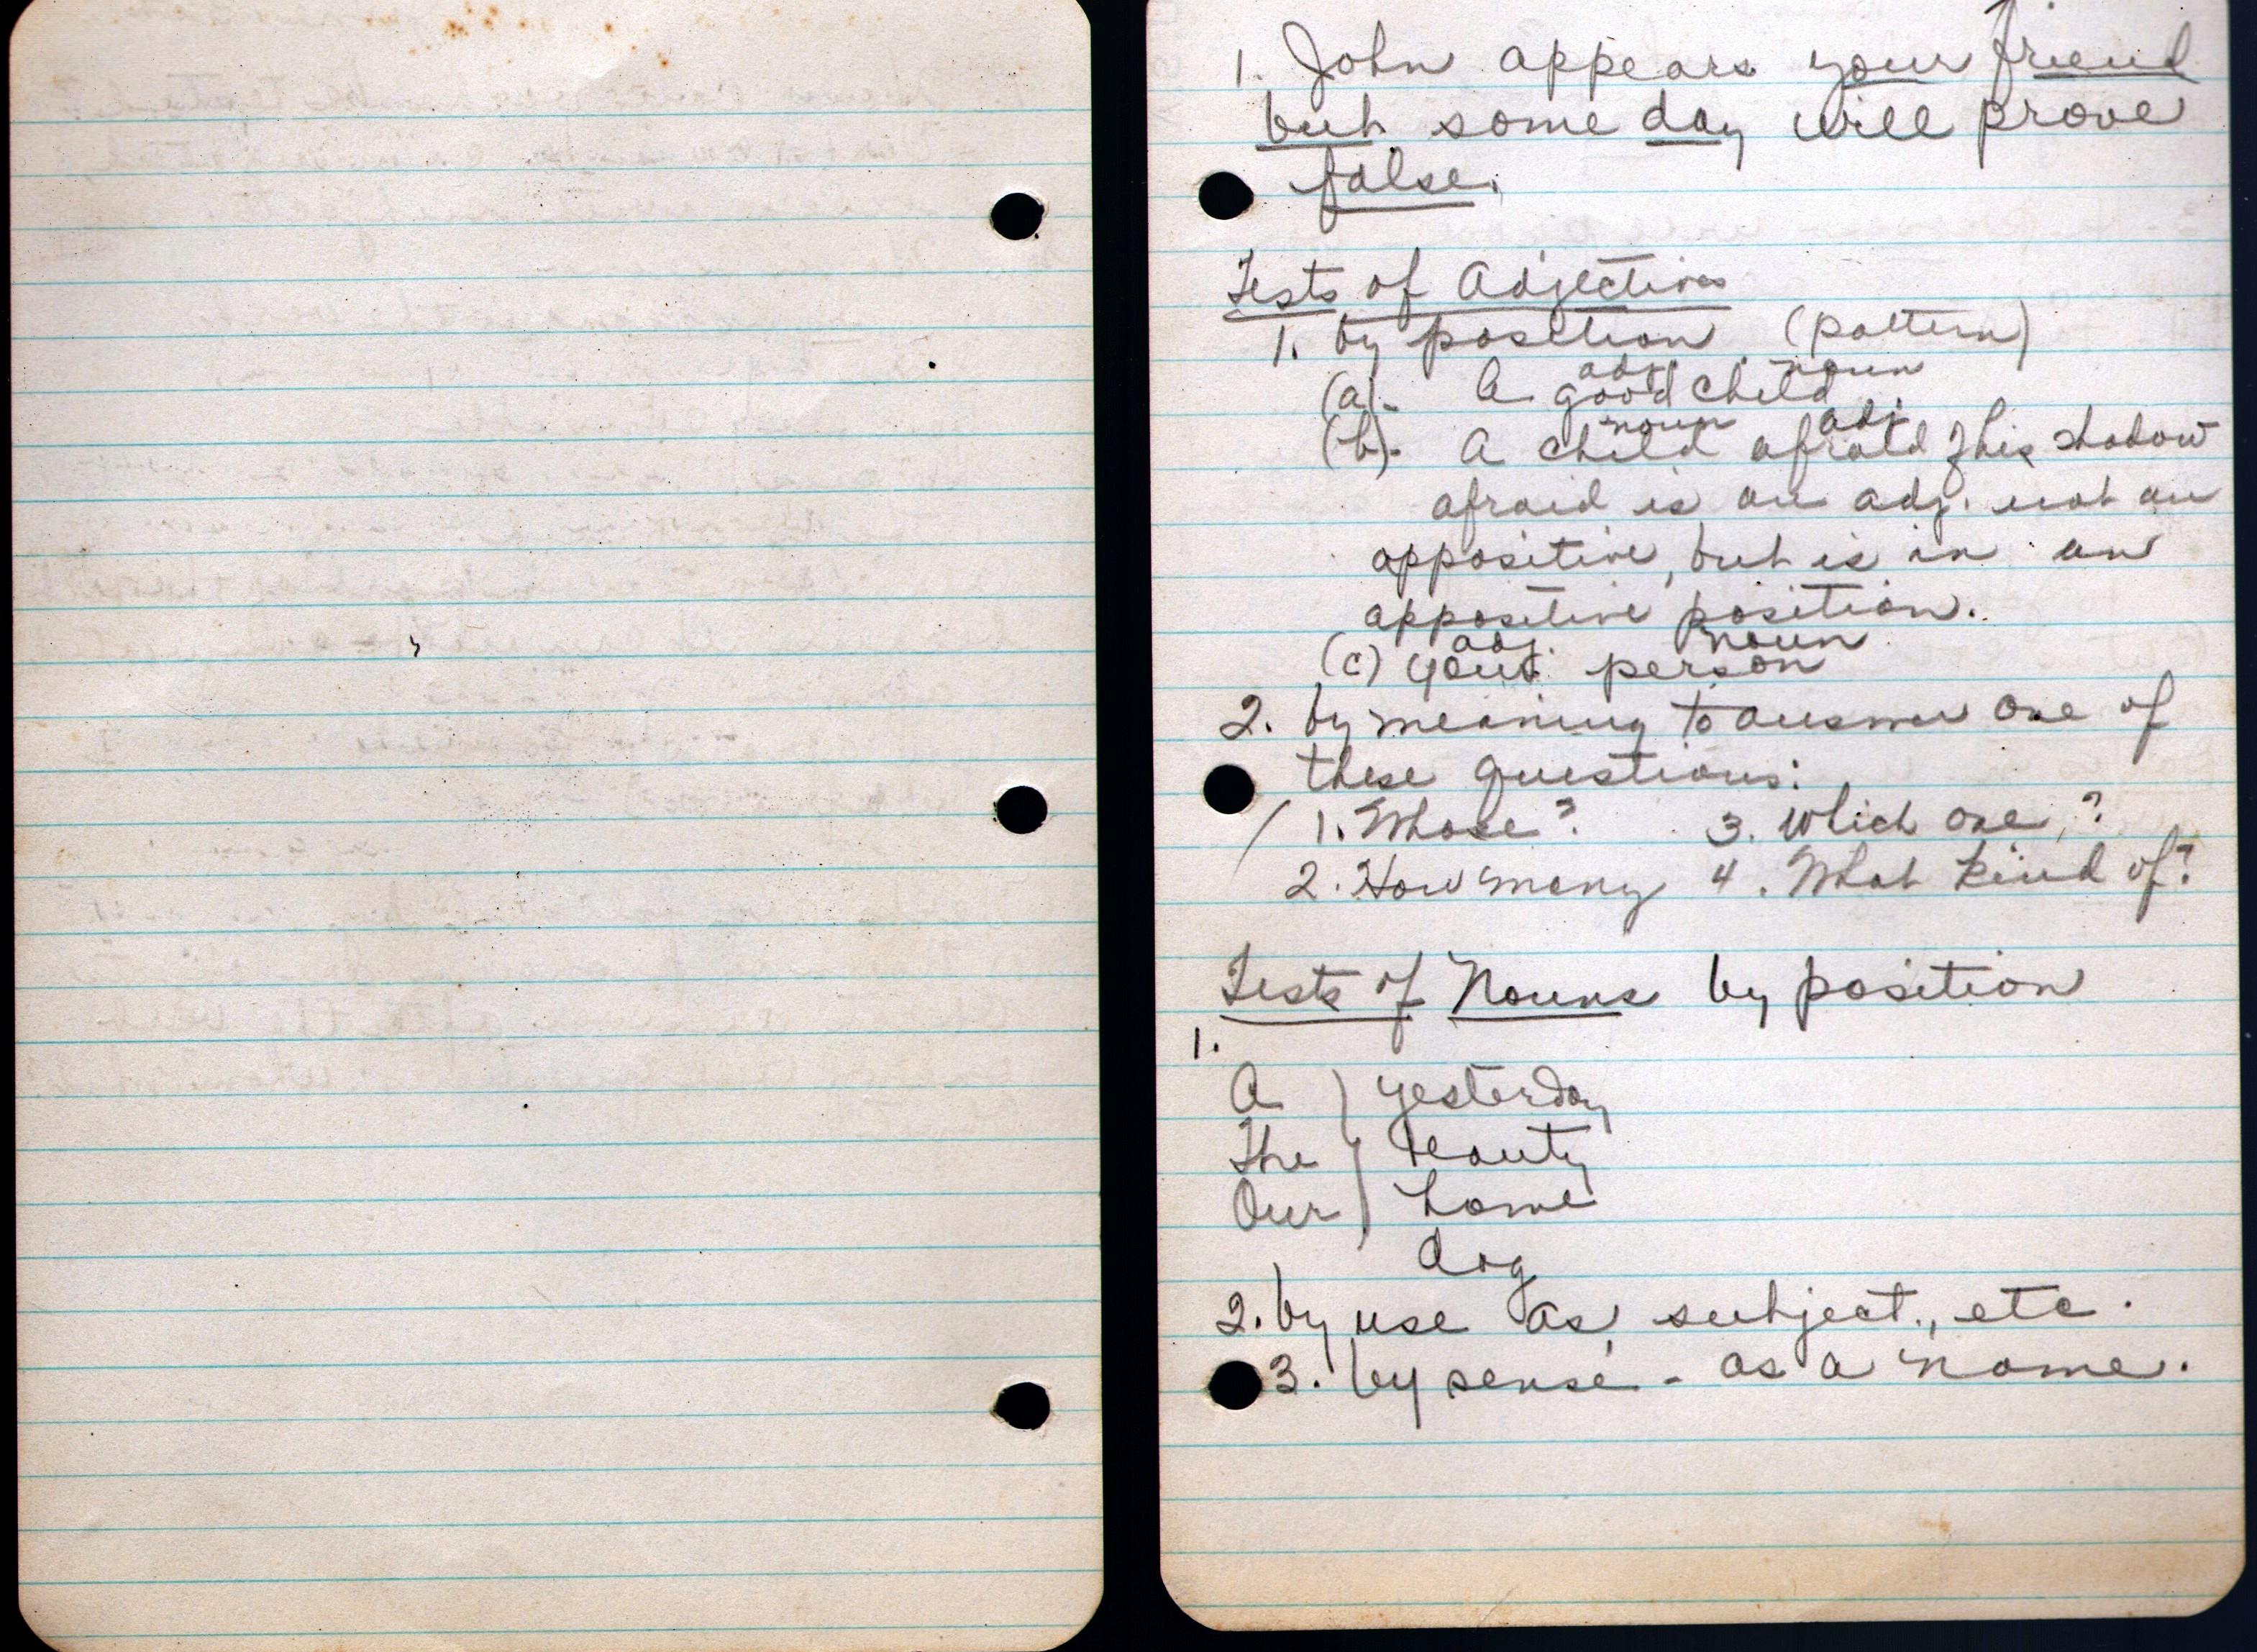 1. John appears your friend
but some day will prove
false.
Tests of Adjectives
1. by position (pattern)
adj. noun
(a). A good child
noun adj.
(b). A child afraid of his shadow
afraid is an adj. not an
appositive, but is in an
appositive position.
adj. noun
(c) your person
2. by meaning to answer one of
these questions:
1. Whose? 3. Which one?
2. How many 4. What kind of?
Tests of Nouns by position
1.
A yesterday
The beauty
Our home
dog
2. by use as subject, etc.
3. by sense - as a name.